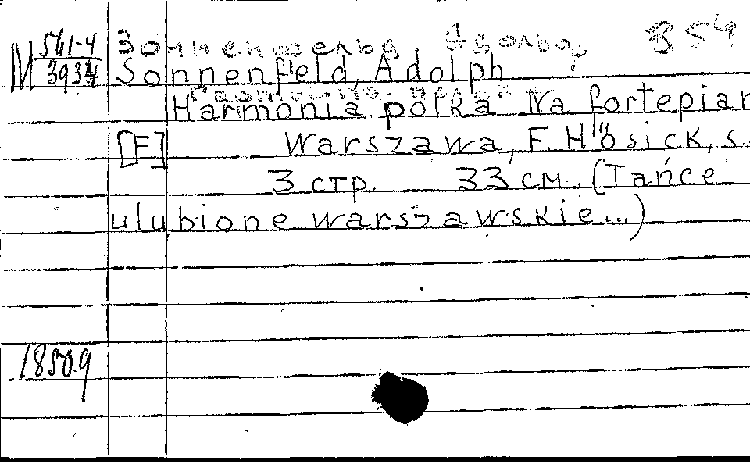 М 561-4 Зонненфельд Адольф 354
3934 Sonnenfeld, Adolph
Harmonia polka Na fortepian
[F] Warszawa, F. Hösick, s.
3 стр. 33 см. (Tańce
ulubione warszawskie...)
18509